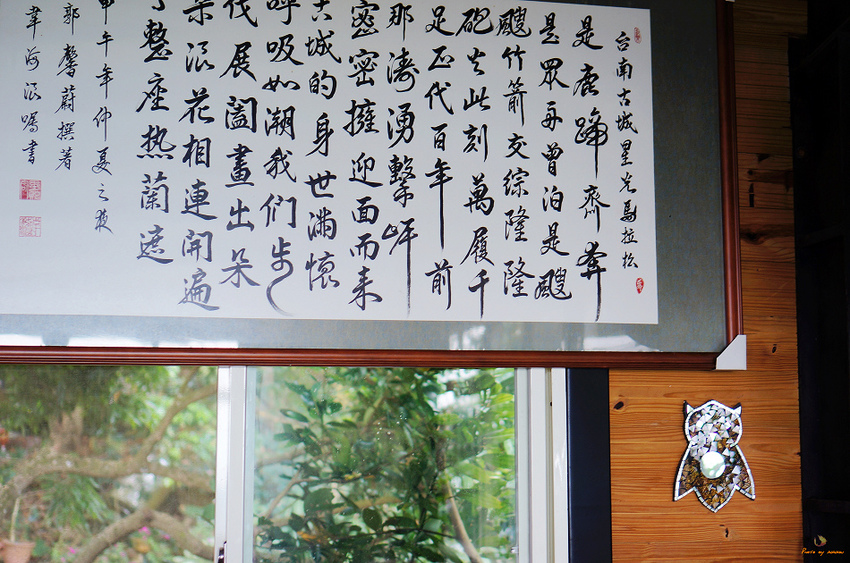 台南古城星光馬拉松
是鹿蹄齊奔
是眾舟曾泊是颼
颼竹箭交綜隆隆
砲火此刻萬履千
足正代百年前
那濤湧擊岸
密密擁迎面而来
古城的身世滿懷
呼吸如潮我们步
伐展闔畫出朵
朵浪花相連開遍
了整座热蘭遮
甲午年仲夏之夜
郭馨蔚撰著
書
Photo by